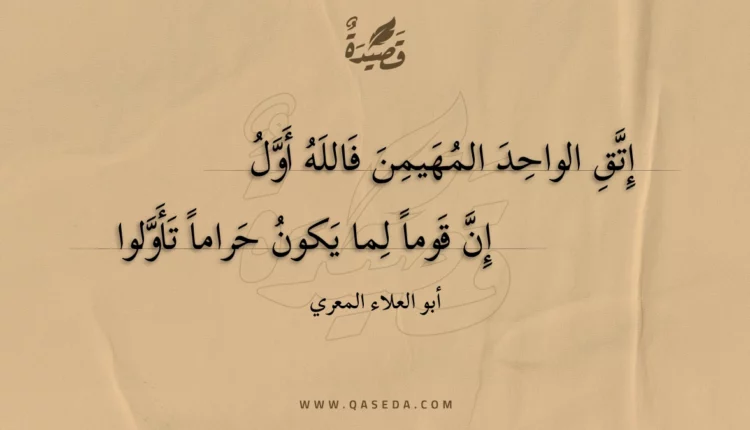 قَصِيْدَةٌ
إِتَّقِ الواحِدَ المُهَيمِنَ فَاللَهُ أَوَّلُ
إِنَّ قَوماً لِما يَكونُ حَراماً تَأَوَّلوا
أبو العلاء المعري
WWW.QASEDA.COM